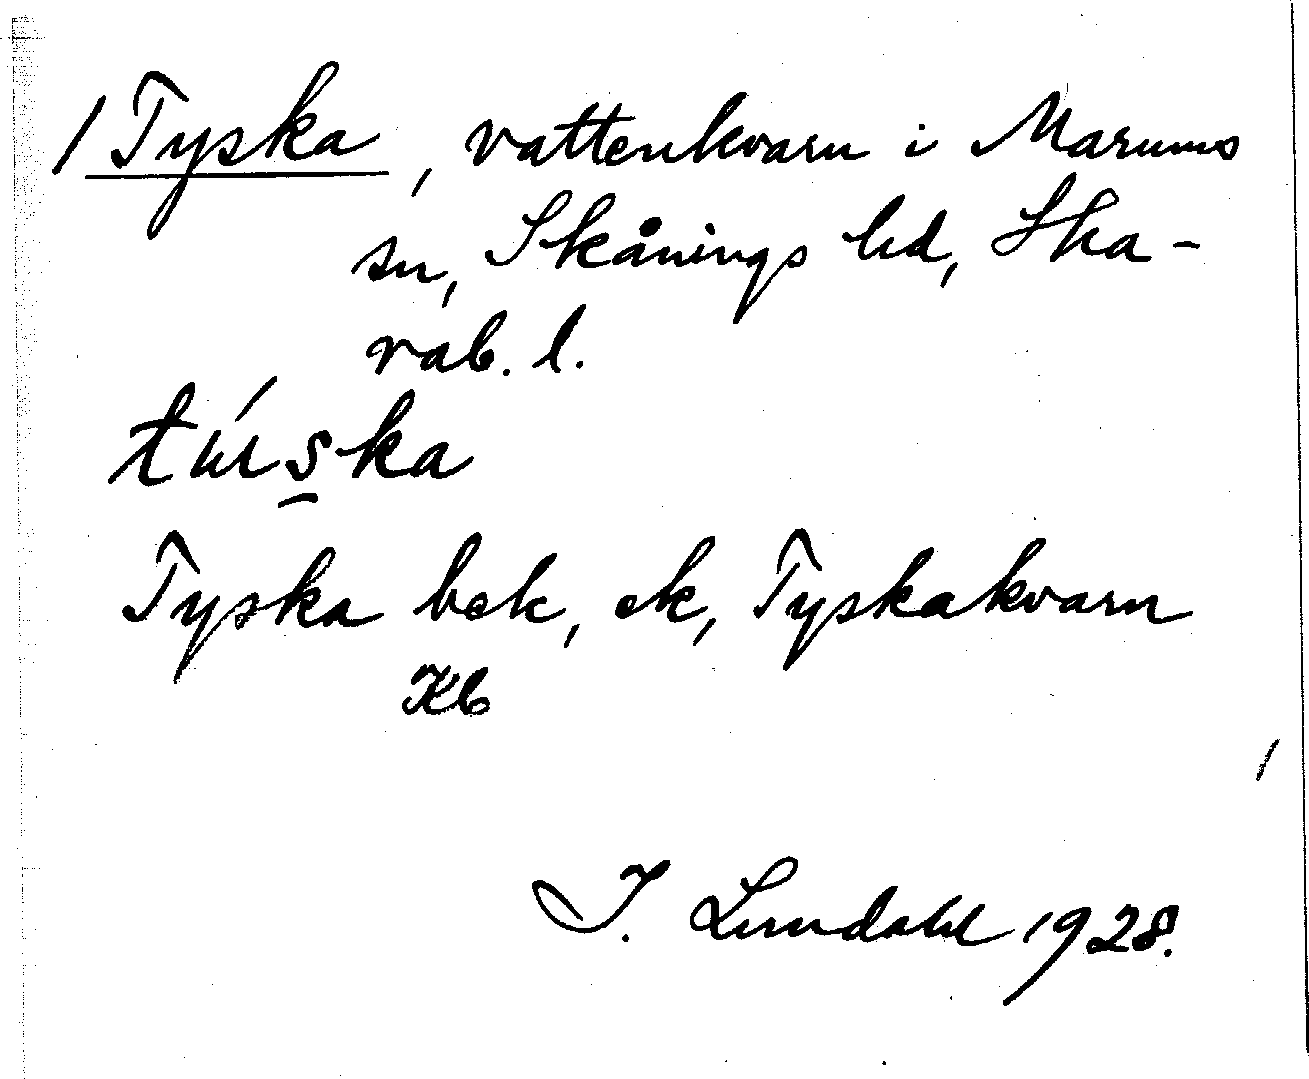 / Tyska, vattenkvarn i Marums
sn, Skånings hd, Ska-
rab. l.
Tyska bek, ek, Tyskakvarn
Kb
I. Lundahl 1928.